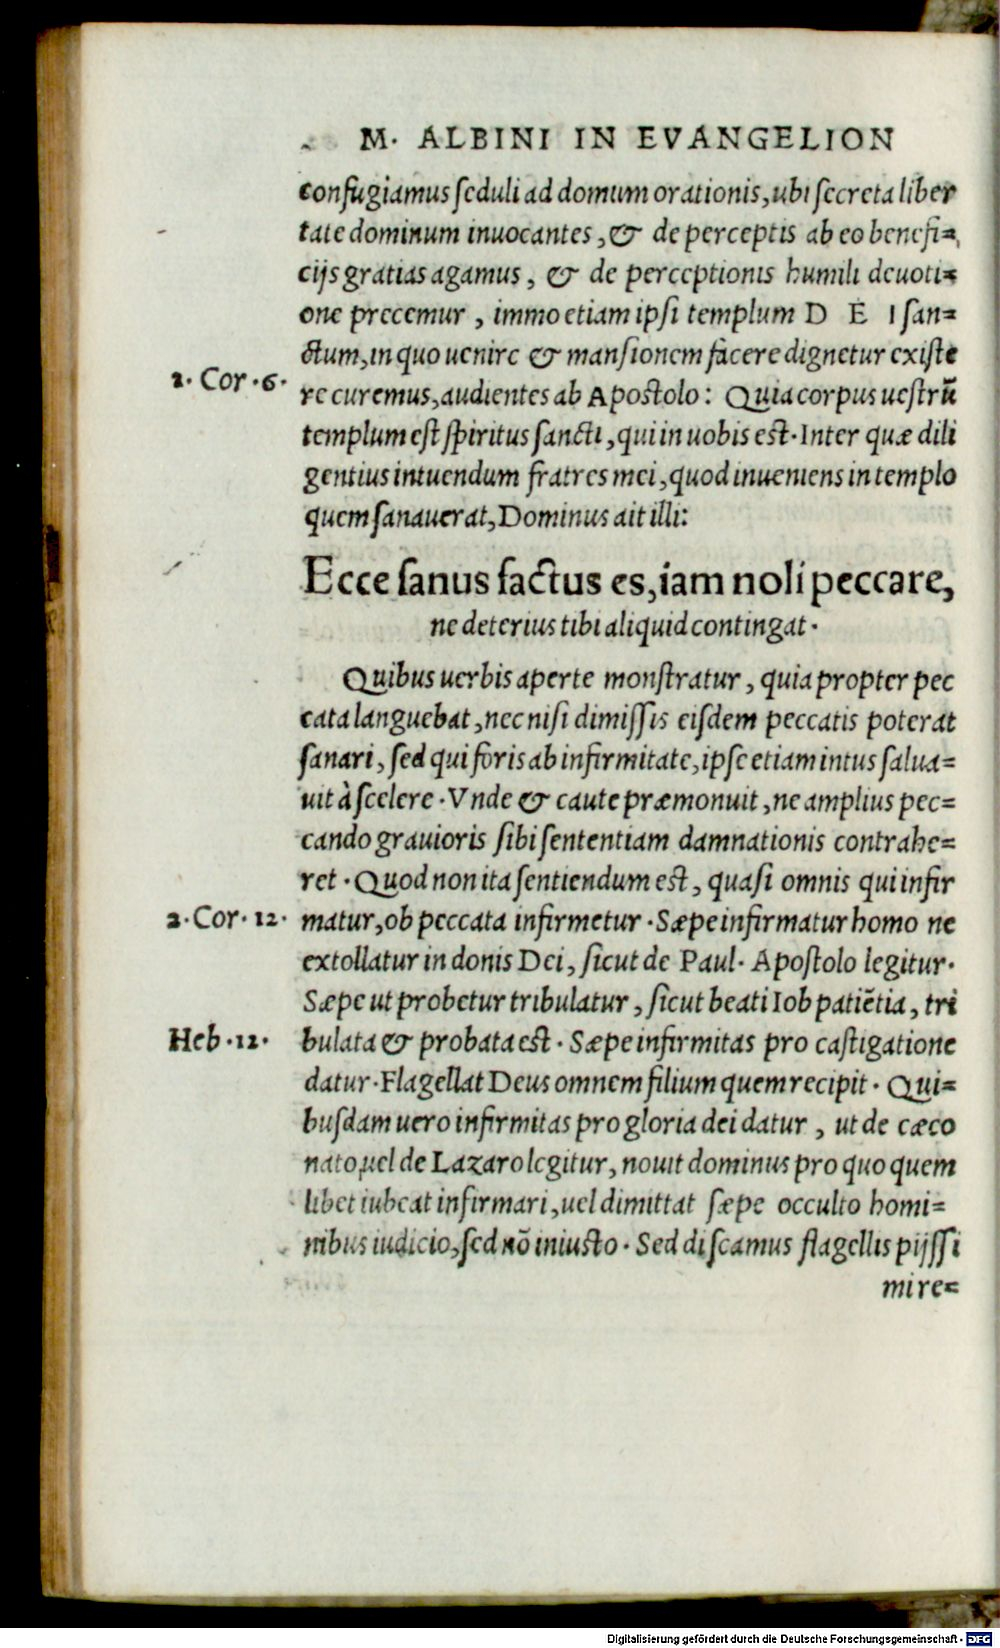 M. ALBINI IN EVANGELION
confugiamus ſeduli ad domum orationis, ubi ſecreta liber
tate dominum inuocantes, & de perceptis ab eo benefi=
cijs gratias agamus, & de perceptionis humili deuoti=
one precemur, immo etiam ipſi templum D E I ſan=
ctum, in quo uenire & manſionem facere dignetur exiſte
1. Cor. 6.
re curemus, audientes ab Apoſtolo: Quia corpus ueſtrū
templum eſt ſpiritus ſancti, qui in uobis eſt. Inter quæ dili
gentius intuendum fratres mei, quod inueniens in templo
quem ſanauerat, Dominus ait illi:
Ecce ſanus factus es, iam noli peccare,
ne deterius tibi aliquid contingat.
Quibus uerbis aperte monſtratur, quia propter pec
cata languebat, nec niſi dimiſſis eiſdem peccatis poterat
ſanari, ſed qui foris ab infirmitate, ipſe etiam intus ſalua=
uit à ſcelere. Vnde & caute præmonuit, ne amplius pec=
cando grauioris ſibi ſententiam damnationis contrahe=
ret. Quod non ita ſentiendum eſt, quaſi omnis qui infir
2. Cor. 12.
matur, ob peccata infirmetur. Sæpe infirmatur homo ne
extollatur in donis Dei, ſicut de Paul. Apoſtolo legitur.
Sæpe ut probetur tribulatur, ſicut beati Iob patiētia, tri
Heb. 12.
bulata & probata eſt. Sæpe infirmitas pro caſtigatione
datur. Flagellat Deus omnem filium quem recipit. Qui=
buſdam uero infirmitas pro gloria dei datur, ut de cæco
nato, uel de Lazaro legitur, nouit dominus pro quo quem
libet iubeat infirmari, uel dimittat ſæpe occulto homi=
nibus iudicio, ſed nō iniuſto. Sed diſcamus flagellis pijſſi
mi re=
Digitalisierung gefördert durch die Deutsche Forschungsgemeinschaft - DFG